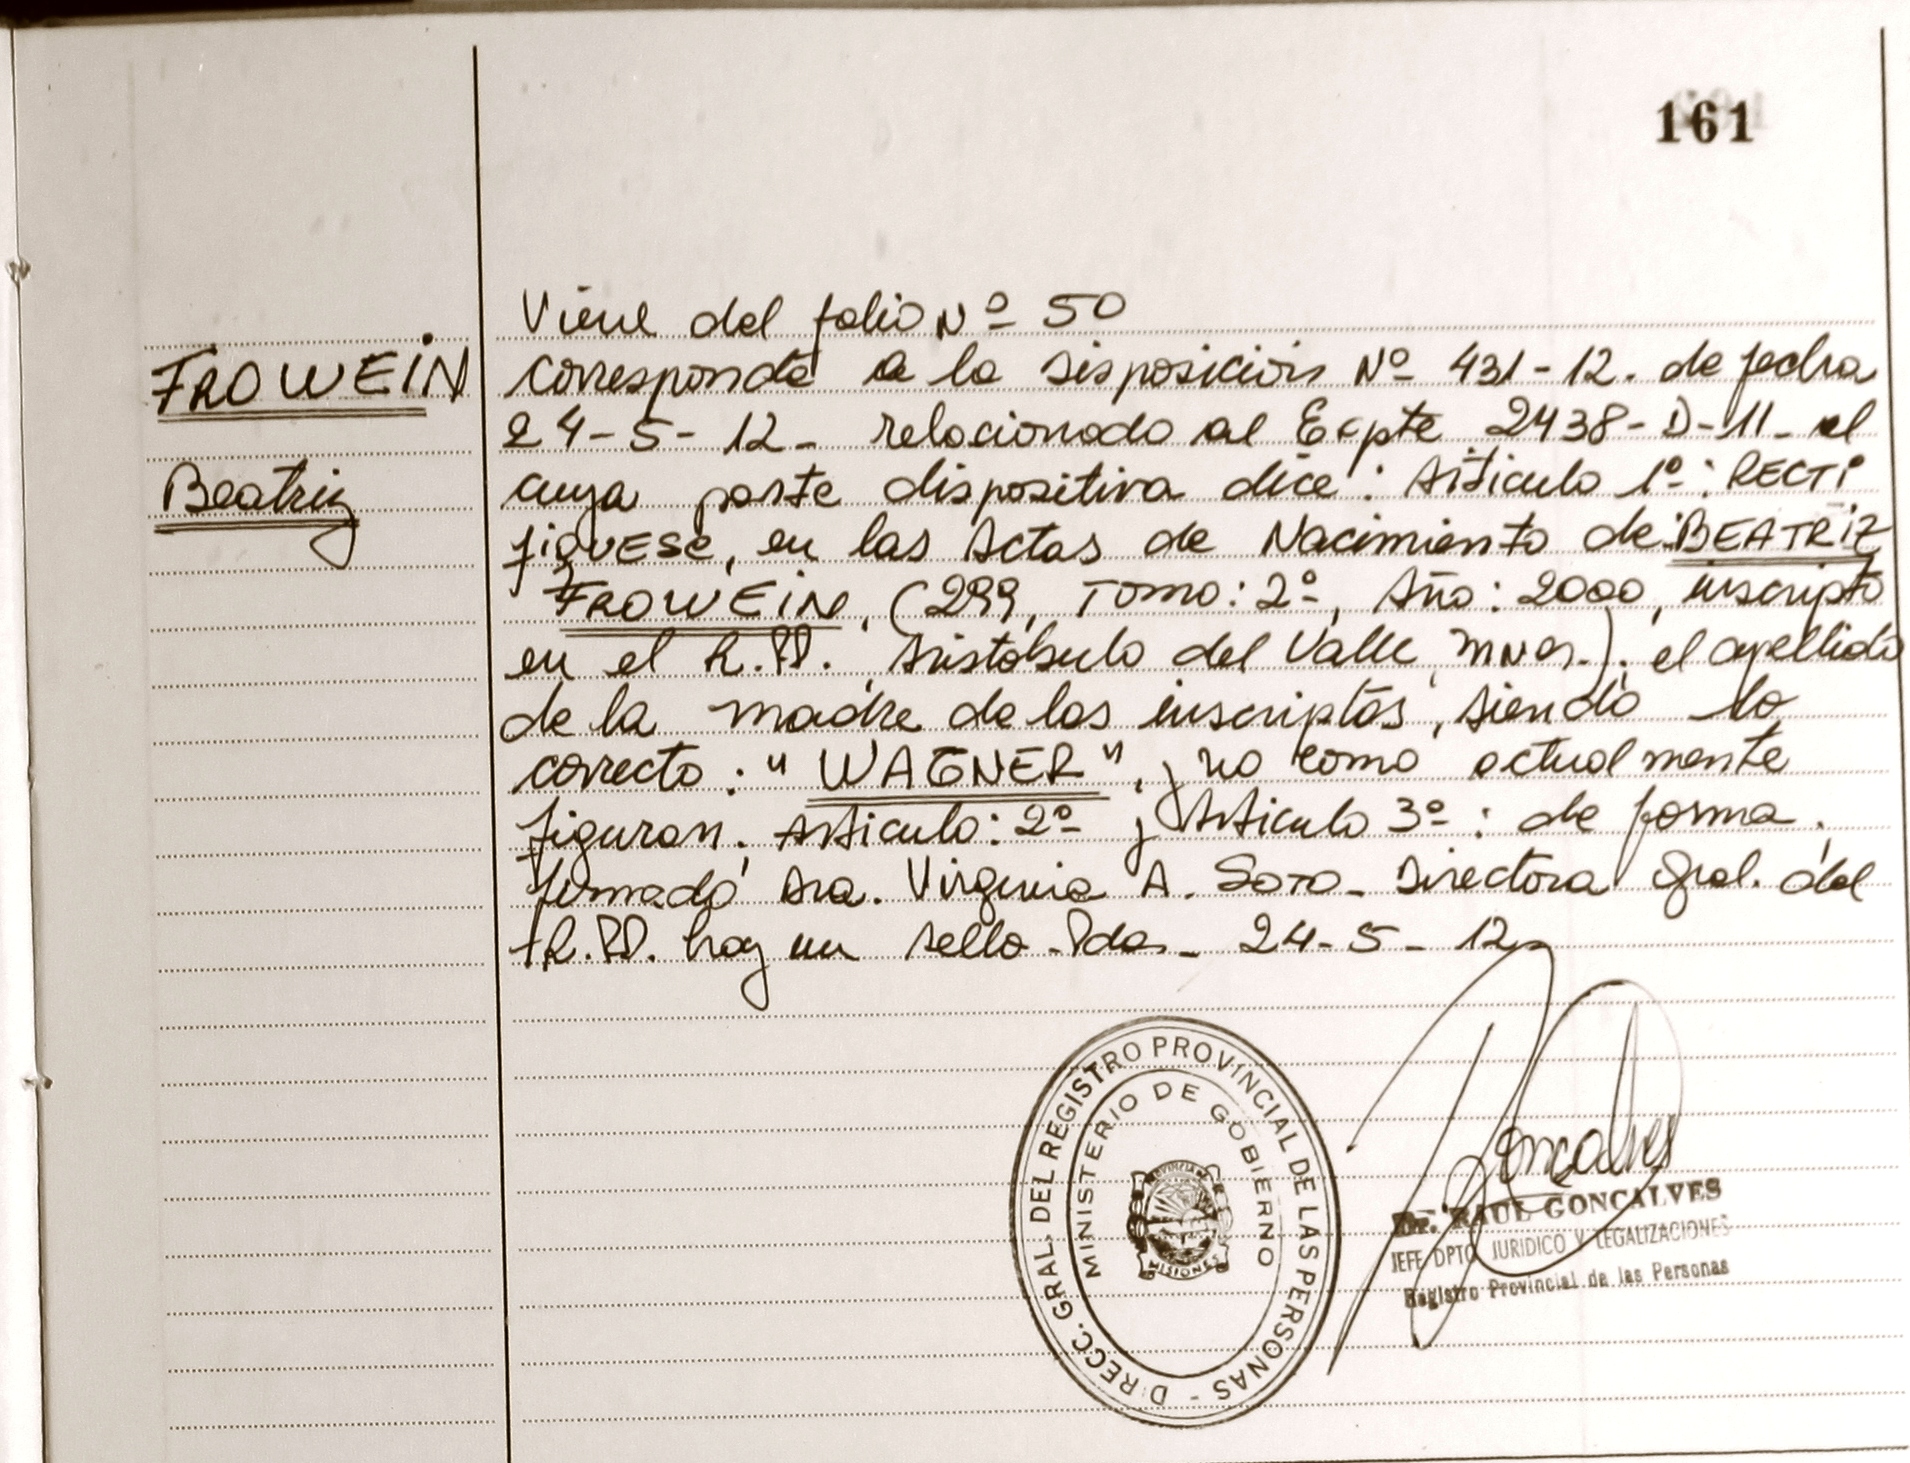 161
Viene del folio Nº 50
FROWEIN
corresponde a la Disposición Nº 431-12. de fecha
24-5-12- relacionado al Ecpte 2438-D-11- el
Beatriz
cuya parte dispositiva dice: Artículo 1º: RECTI
fiquese, en las Actas de Nacimiento de: BEATRIZ
FROWEIN, (299, Tomo: 2º, Año: 2000, inscripto
en el R.PP. Aristóbulo del Valle, Mnes.). el apellido
de la madre de los inscriptos, siendo lo
correcto: "WAGNER", y no como actualmente
figuran. Artículo: 2º y Artículo 3º: de forma.
firmado Sra. Virginia A. Soto- Directora Gral. del
R.PP. hay un sello-Pdas- 24-5-12
DIRECC. GRAL. DEL REGISTRO PROVINCIAL DE LAS PERSONAS -
MINISTERIO DE GOBIERNO
PROVINCIA DE
MISIONES
Goncalves
Dr. RAUL GONCALVES
JEFE DPTO JURIDICO Y LEGALIZACIONES
Registro Provincial de las Personas